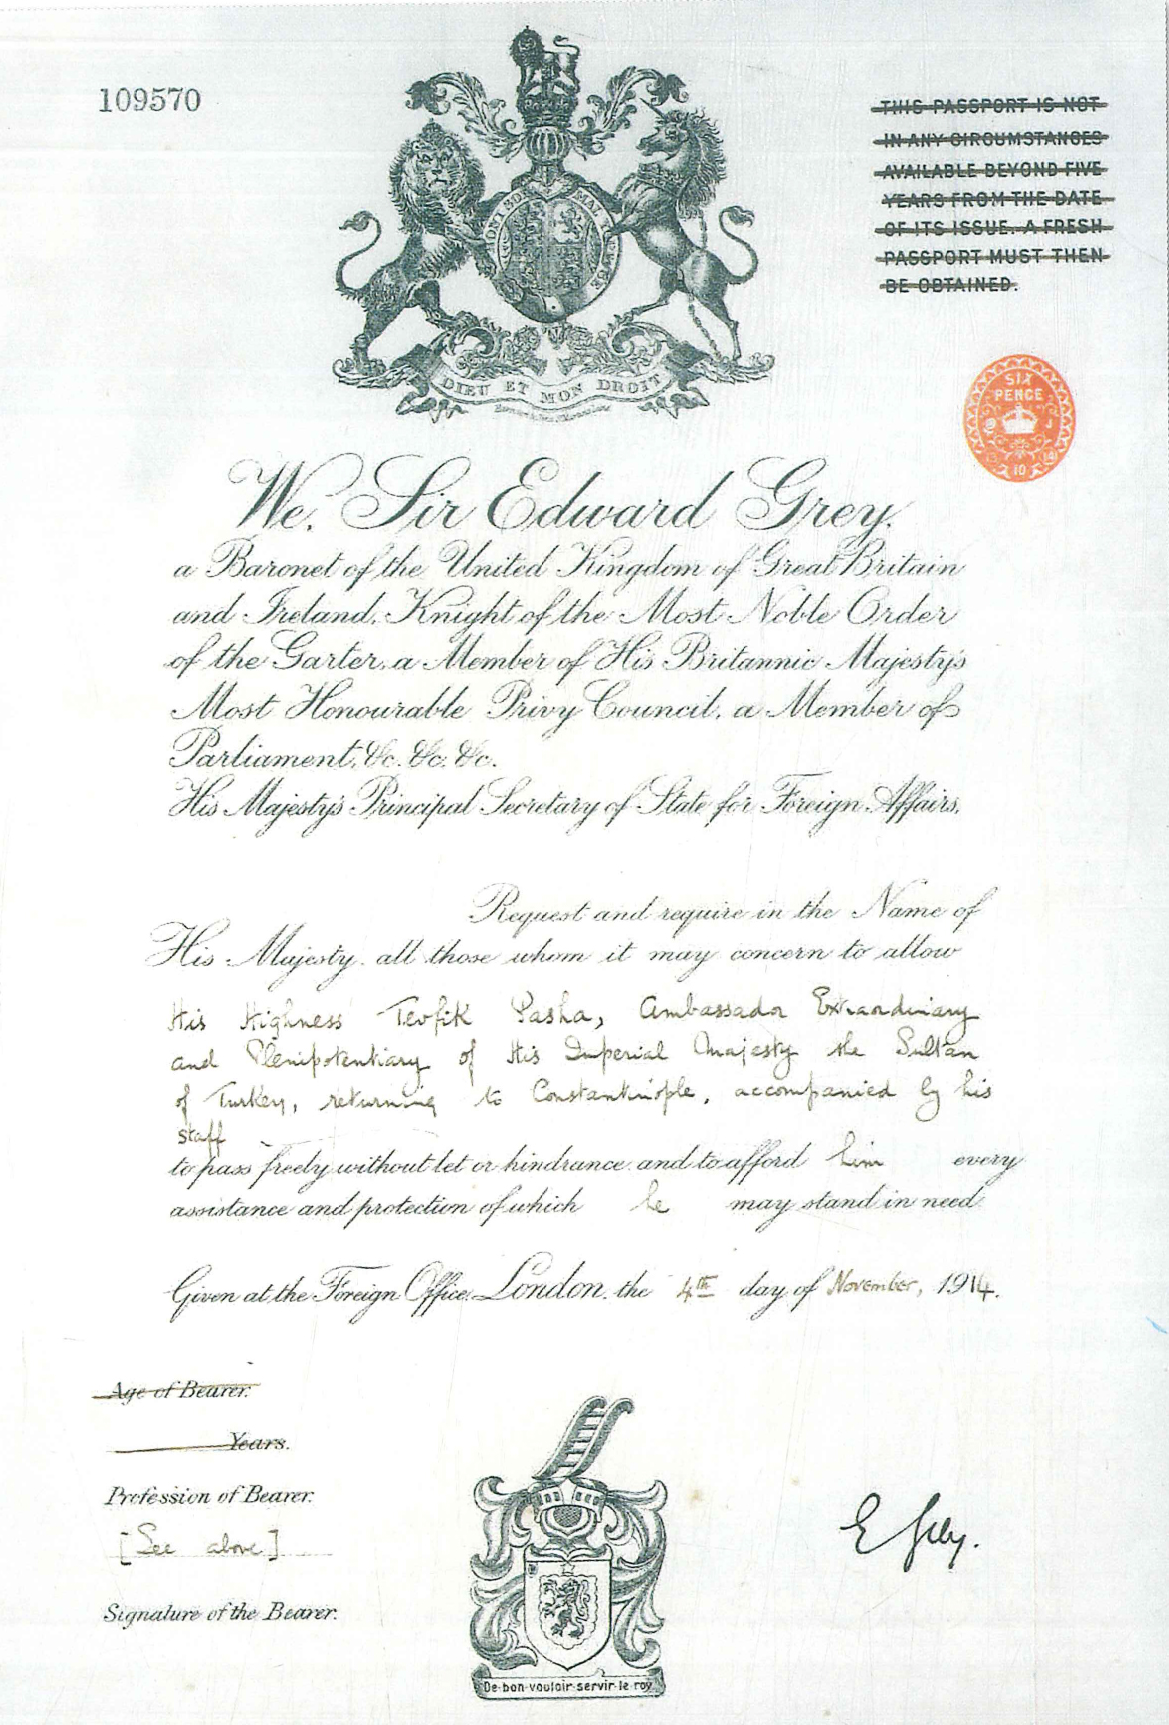 109570
THIS PASSPORT IS NOT
IN ANY CIRCUMSTANCES
AVAILABLE BEYOND FIVE
YEARS FROM THE DATE
OF ITS ISSUE. A FRESH
PASSPORT MUST THEN
BE OBTAINED.
HONI SOI MAL Y
DIEU ET MON DROIT
SIX
PENCE
13 14
10
We, Sir Edward Grey,
a Baronet of the United Kingdom of Great Britain
and Ireland, Knight of the Most Noble Order
of the Garter, a Member of His Britannic Majesty's
Most Honourable Privy Council, a Member of
Parliament, &c. &c. &c.
His Majesty's Principal Secretary of State for Foreign Affairs,
Request and require in the Name of
His Majesty all those whom it may concern to allow
His Highness Tevfik Pasha, Ambassador Extraordinary
and Plenipotentiary of His Imperial Majesty the Sultan
of Turkey, returning to Constantinople, accompanied by his
staff
to pass freely without let or hindrance and to afford him every
assistance and protection of which he may stand in need.
Given at the Foreign Office, London, the 4th day of November, 1914.
Age of Bearer.
Years.
Profession of Bearer.
[See above]
Signature of the Bearer.
E Grey.
De·bon·vouloir·servir·le·roy